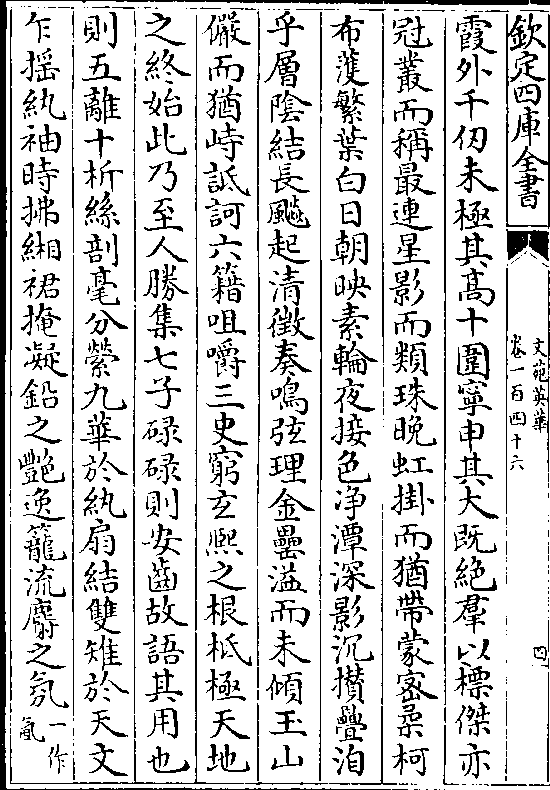 欽定四庫全書
文苑英華
卷一百四十六
四
霞外千仞未極其高十圍寧申其大既絶羣以標傑亦
冠叢而稱最連星影而類珠晚虹掛而猶帶蒙密桑柯
布濩繁葉白日朝映素輪夜接色净潭深影沉攢疊洎
乎層陰結長飈起清徵奏鳴弦理金罍溢而未傾玉山
儼而猶峙詆訶六籍咀嚼三史窮玄熙之根柢極天地
之終始此乃至人勝集七子碌碌則安齒故語其用也
則五離十析絲剖毫分縈九華於紈扇結雙雉於天文
乍揺紈袖時拂緗裙掩凝鉛之艷逸籠流麝之氛一作氳